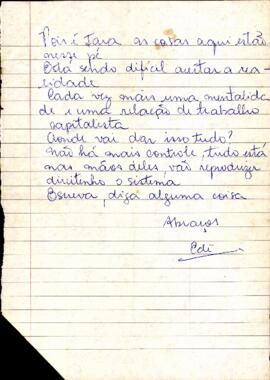 Pois é Sara as coisas aqui estão
nesse pé
Está sendo difícil aceitar a rea-
lidade
Cada vez mais uma mentalida
de e uma relação de trabalho
capitalista
Aonde vai dar isso tudo?
Não há mais controle, tudo está
nas mãos deles, vão reproduzir
direitinho o sistema
Escreva, diga alguma coisa
Abraços
Edi